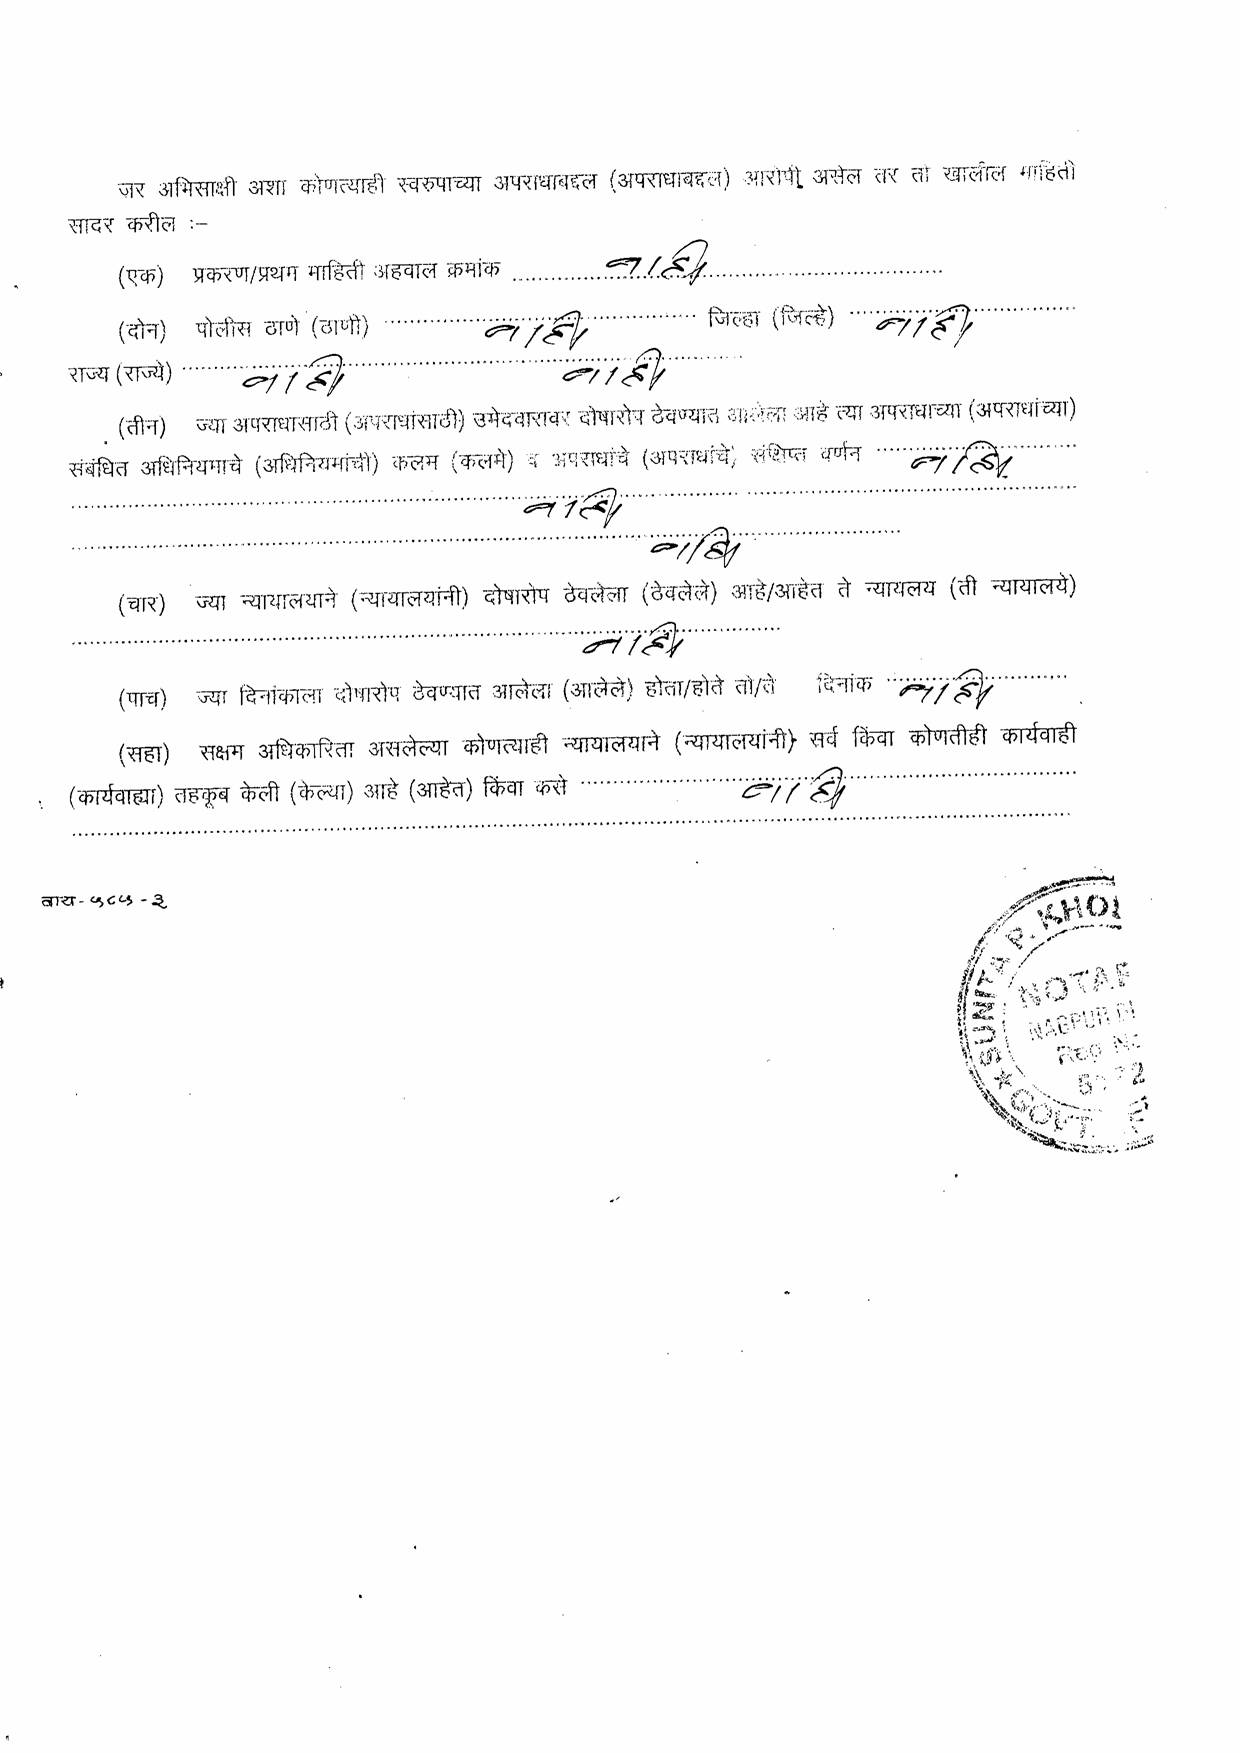 जर अभिसाक्षी अशा कोणत्याही स्वरुपाच्या अपराधाबद्दल (अपराधाबद्दल) आरोपी असेल तर तो खालील माहिती
सादर करील :–
(एक) प्रकरण/प्रथम माहिती अहवाल क्रमांक नाही
(दोन) पोलीस ठाणे (ठाणी) नाही जिल्हा (जिल्हे) नाही
राज्य (राज्ये) नाही नाही
(तीन) ज्या अपराधासाठी (अपराधांसाठी) उमेदवारावर दोषारोप ठेवण्यात आलेला आहे त्या अपराधाच्या (अपराधांच्या)
संबंधित अधिनियमाचे (अधिनियमांची) कलम (कलमे) व अपराधांचे (अपराधांचे) संक्षिप्त वर्णन नाही
नाही
नाही
(चार) ज्या न्यायालयाने (न्यायालयांनी) दोषारोप ठेवलेला (ठेवलेले) आहे/आहेत ते न्यायलय (ती न्यायालये)
नाही
(पाच) ज्या दिनांकाला दोषारोप ठेवण्यात आलेला (आलेले) होता/होते तो/ते दिनांक नाही
(सहा) सक्षम अधिकारिता असलेल्या कोणत्याही न्यायालयाने (न्यायालयांनी) सर्व किंवा कोणतीही कार्यवाही
(कार्यवाह्या) तहकूब केली (केल्या) आहे (आहेत) किंवा कसे नाही
वाय-५८५-३
SUNITA P. KHO
NOTAR
NAGPUR
Reg No
GOVT.